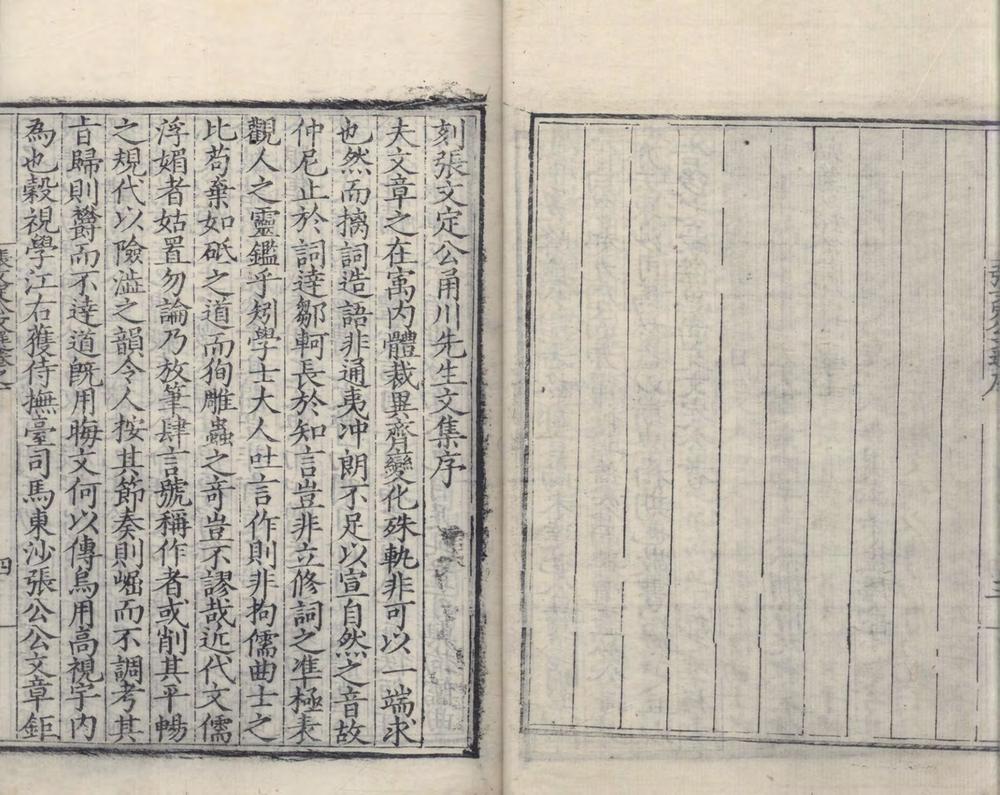 刻張文定公甬川先生文集序
夫文章之在寓内體裁異齊變化殊軌非可以一端求
也然而摛詞造語非通夷冲朗不足以宣自然之音故
仲尼止於詞逹鄒軻長於知言豈非立修詞之準極表
觀人之靈鑑乎矧學士大人吐言作則非拘儒曲士之
比苟棄如砥之道而狥雕蟲之奇豈不謬哉近代文儒
浮媚者姑置勿論乃放筆肆言號稱作者或削其平暢
之規代以險澁之韻令人按其節奏則崛而不調考其
㫖歸則欝而不逹道旣用晦文何以傳烏用高視宇内
爲也榖視學江右獲侍撫臺司馬東沙張公公文章鉅
四